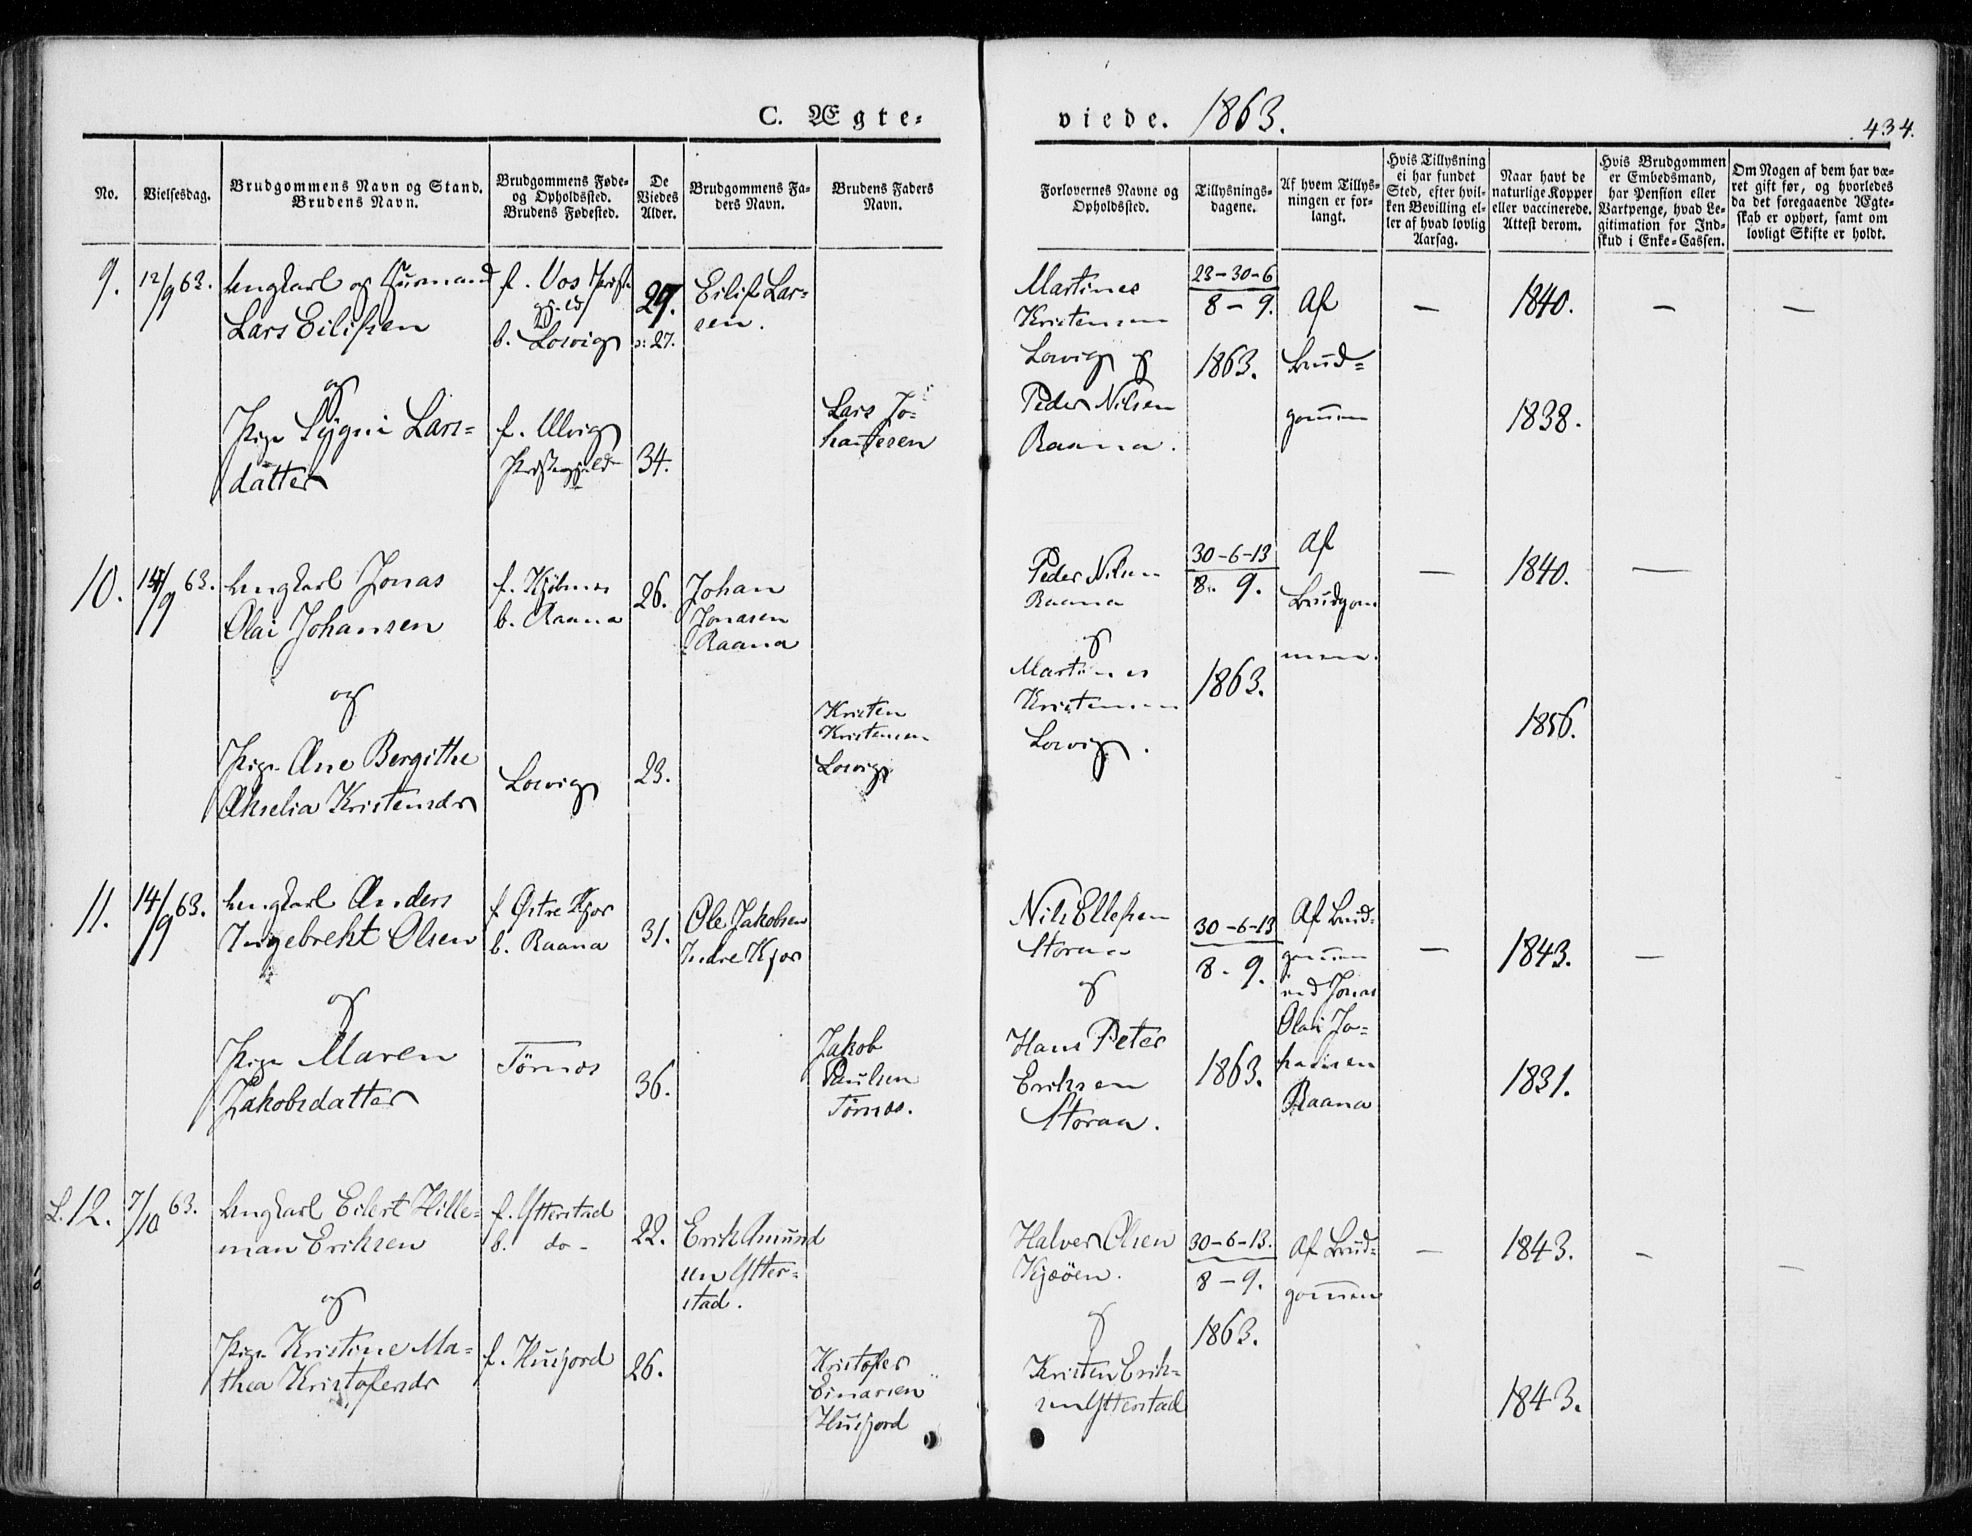 C. Ægte-
viede. 1863.
434.
No.
Vielsesdag.
Brudgommens Navn og Stand.
Brudens Navn.
Brudgommens Føde-
og Opholdssted.
Brudens Fødested.
De
Viedes
Alder.
Brudgommens Fa-
ders Navn.
Brudens Faders
Navn.
Forlovernes Navne og
Opholdssted.
Tillysnings-
dagene.
Af hvem Tillys-
ningen er for-
langt.
Hvis Tillysning
ei har fundet
Sted, efter hvil-
ken Bevilling el-
ler af hvad lovlig
Aarsag.
Naar havt de
naturlige Kopper
eller vaccinerede.
Attest derom.
Hvis Brudgommen
er Embedsmand,
har Pension eller
Vartpenge, hvad Le-
gitimation for Ind-
skud i Enke-Cassen.
Om Nogen af dem har væ-
ret gift før, og hvorledes
da det foregaaende Ægte-
skab er ophørt, samt om
lovligt Skifte er holdt.
9.
12/9 63.
Ungkarl og
Lars Eilifsen
og
Pige Sygni Lars-
datter
f. Vos Præste-
gjeld
b. Lovig
f. Ulvig
Præstegjeld
29.
o: 27.
34.
Eilif Lar-
sen.
Lars Jo-
hannesen
Martines
Kristensen
Lovig og
Peder Nilsen
Raana.
23-30-6
8 - 9.
1863.
Af
Brud-
gommen
—
1840.
1838.
—
—
10.
14/9 63.
Ungkarl Jonas
Olai Johansen
og
Pige Ane Bergithe
Akselia Kristensdr
f. Kjølnes
b. Raana
Lovig
26.
23.
Johan
Jonasen
Raana
Kristen
Kristensen
Lovig
Peder Nilsen
Raana
og
Martines
Kristensen
Lovig.
30-6-13
8. 9.
1863.
Af
Brudgom
men.
—
1840.
1856.
—
11.
14/9 63.
Ungkarl Anders
Ingebreht Olsen
og
Pige Maren
Jakobsdatter
f Østre Kjor
b. Raana
Tørnes
31.
36.
Ole Jakobsen
Indre Kjor
Jakob
Paulsen
Tørnes.
Nils Ellefsen
Storaa
og
Hans Peter
Eriksen
Storaa.
30-6-13
8 - 9.
1863.
Af Brud-
gommen
ved Jonas
Olai Jo-
hansen
Raana
—
1843.
1831.
—
L. 12.
7/10 63.
Ungkarl Eilert Hille-
man Eriksen
og
Pige Kristine Ma-
thea Kristofersdr
f. Ytterstad
b. do -
f. Husjord
22.
26.
Erik Amund
sen Ytter-
stad.
Kristofer
Einarsen
Husjord
Halver Olsen
Kjæøen.
og
Kristen Erik-
sen Ytterstad
30-6-13.
8 - 9.
1863.
Af Brud-
gommen
—
1843.
1843.
—
—